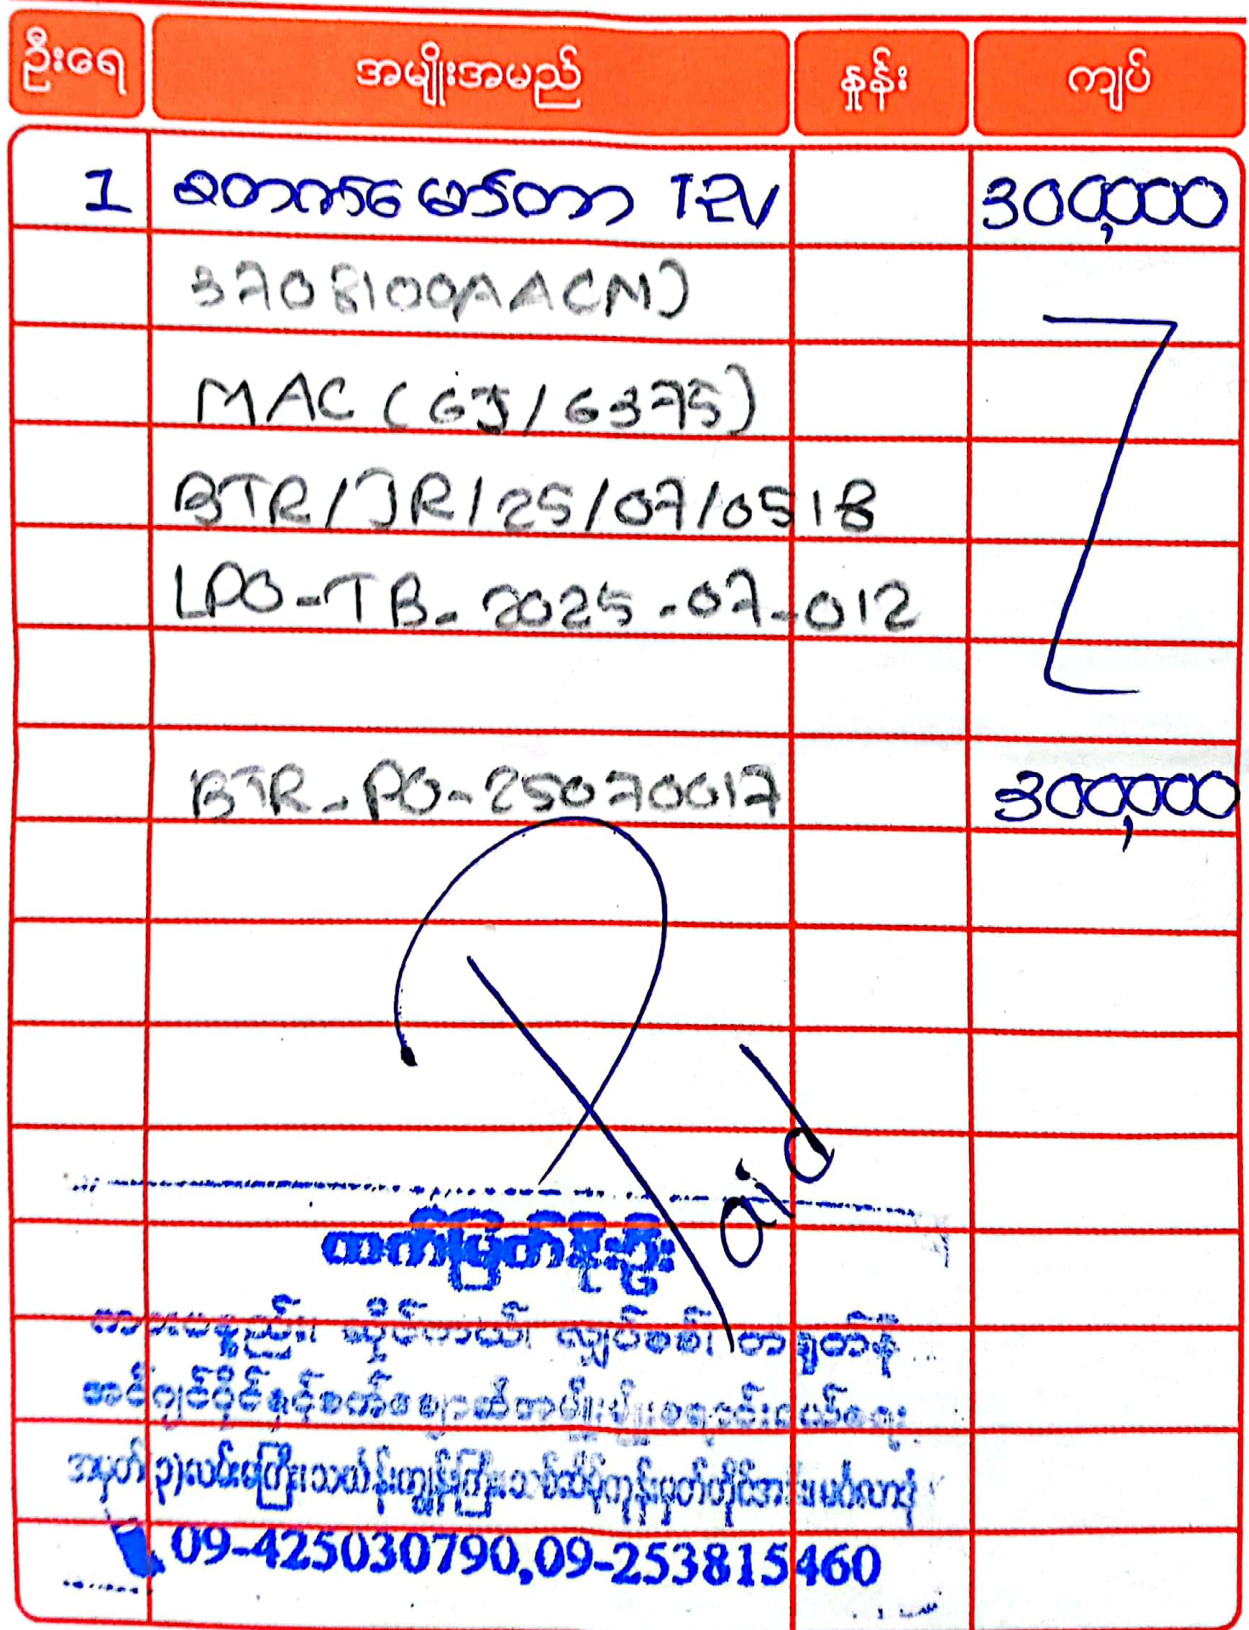 ဦးရေ အမျိုးအမည် နှုန်း ကျပ်
1 စတက်မော်တာ 12V 300,000
3708100AACM)
MAC (6J/6375)
BTR/JR/25/07/0518
LPO-TB-2025-07-012
BTR-PO-25070017 300,000
Paid
ထက်မြတ်စိုးဦး
ဆိုင်ကယ် လျှပ်စစ် တရုတ်နီ
09-425030790,09-253815460